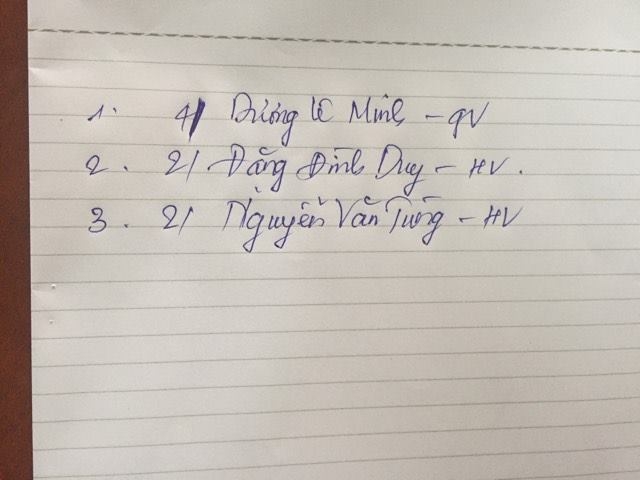 1. 4/ Dương Lê Minh - GV
2. 2/ Đặng Đình Duy - HV.
3. 2/ Nguyễn Văn - HV